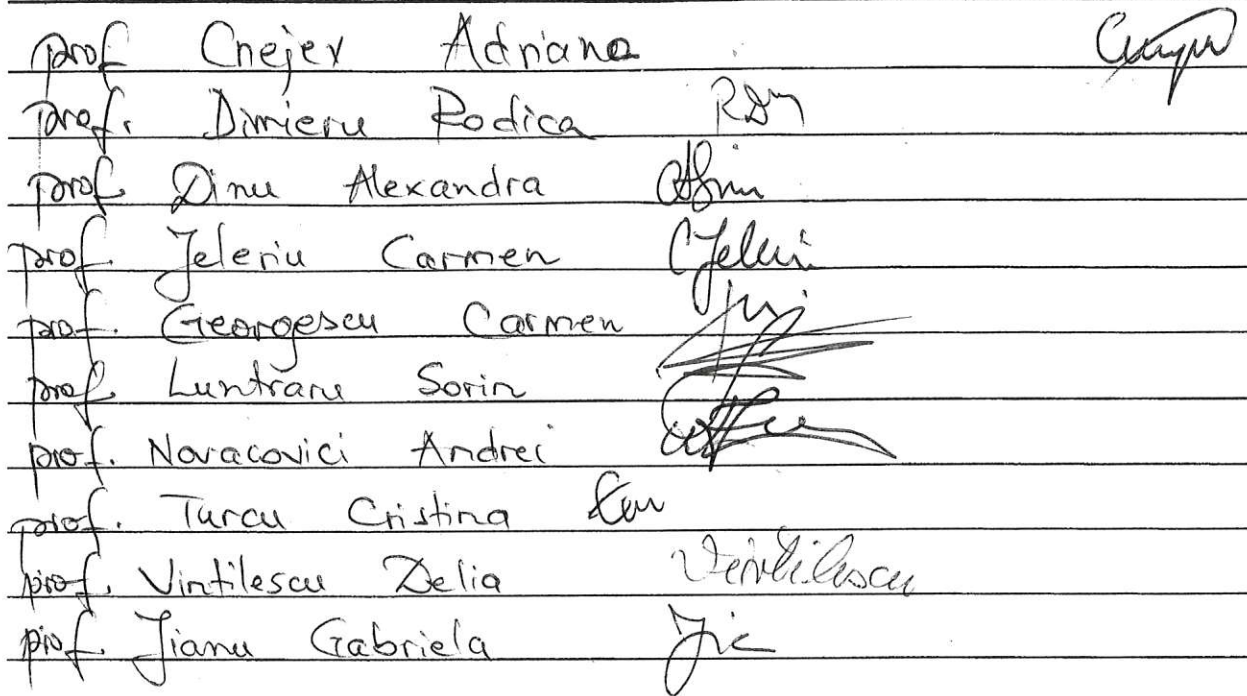 prof Cnejev Adriana
prof. Dimieru Rodica
prof. Dinu Alexandra
prof. Jeleriu Carmen CJeleri
prof. Georgescu Carmen
prof. Luntraru Sorin
prof. Novacovici Andrei
prof. Turcu Cristina
prof. Vintilescu Delia Vintilescu
prof. Jianu Gabriela